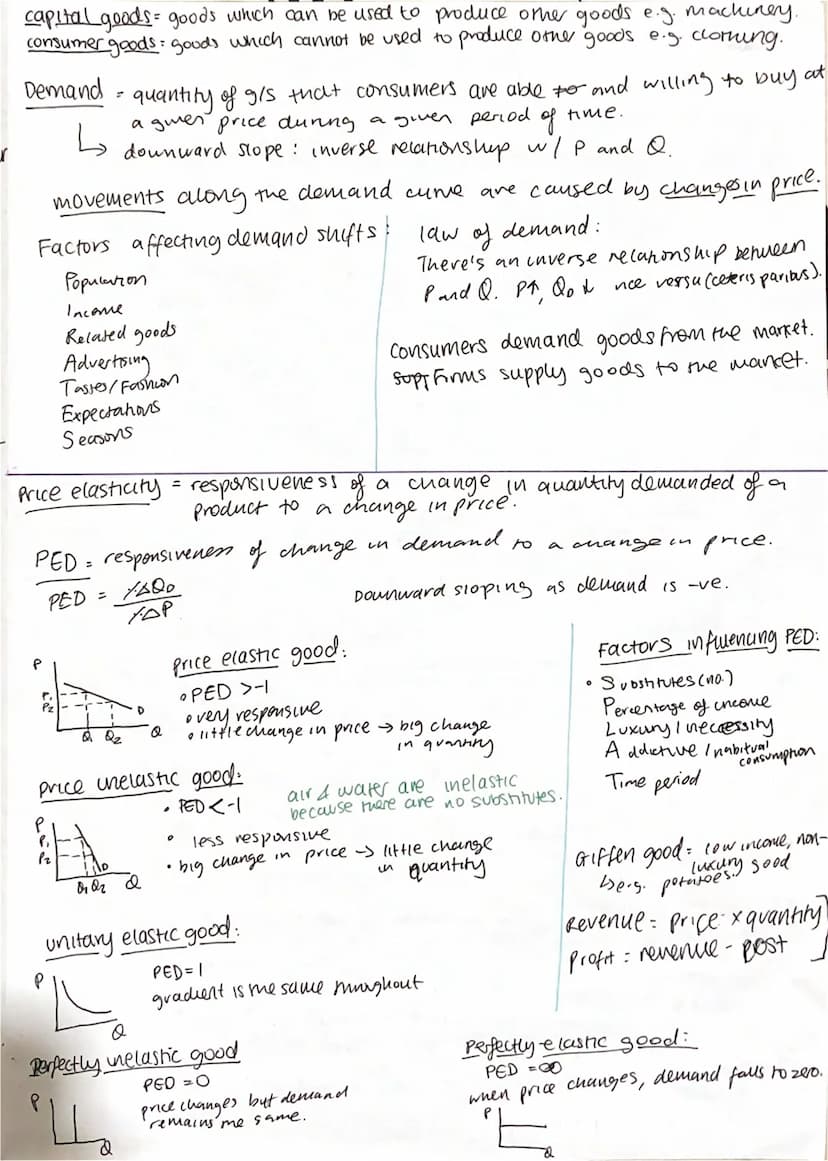 capital goods = goods which can be used to produce other goods e.g. machinery.
consumer goods = goods which cannot be used to produce other goods e.g. clothing.
Demand = quantity of g/s that consumers are able to and willing to buy at
a given price during a given period of time.
↳ downward slope : inverse relationship w/ P and Q.
movements along the demand curve are caused by changes in price.
Factors affecting demand shifts :
Population
Income
Related goods
Advertising
Tastes/Fashion
Expectations
Seasons
law of demand :
There's an inverse relationship between
P and Q. P↑, QD ↓ vice versa (ceteris paribus).
Consumers demand goods from the market.
supp Firms supply goods to the market.
Price elasticity = responsiveness of a change in quantity demanded of a
product to a change in price.
PED = responsiveness of change in demand to a change in price.
PED = %ΔQD
%ΔP
Downward sloping as demand is -ve.
P
P1
P2
D
Q1 Q2 Q
price elastic good :
• PED >-1
• very responsive
• little change in price → big change
in quantity
price inelastic good :
• PED <-1
air & water are inelastic
because there are no substitutes.
• less responsive
• big change in price → little change
in quantity
P
P1
P2
D
Q1 Q2 Q
unitary elastic good :
PED = 1
gradient is the same throughout
P
Q
Perfectly inelastic good
PED = 0
price changes but demand
remains the same.
P
Q
Factors influencing PED :
• Substitutes (no.)
Percentage of income
Luxury / necessity
Addictive / habitual
consumption
Time period
Giffen good = low income, non-
luxury good
↳ e.g. potatoes.
Revenue = price × quantity
Profit = revenue - cost
Perfectly elastic good :
PED = ∞
when price changes, demand falls to zero.
P
Q